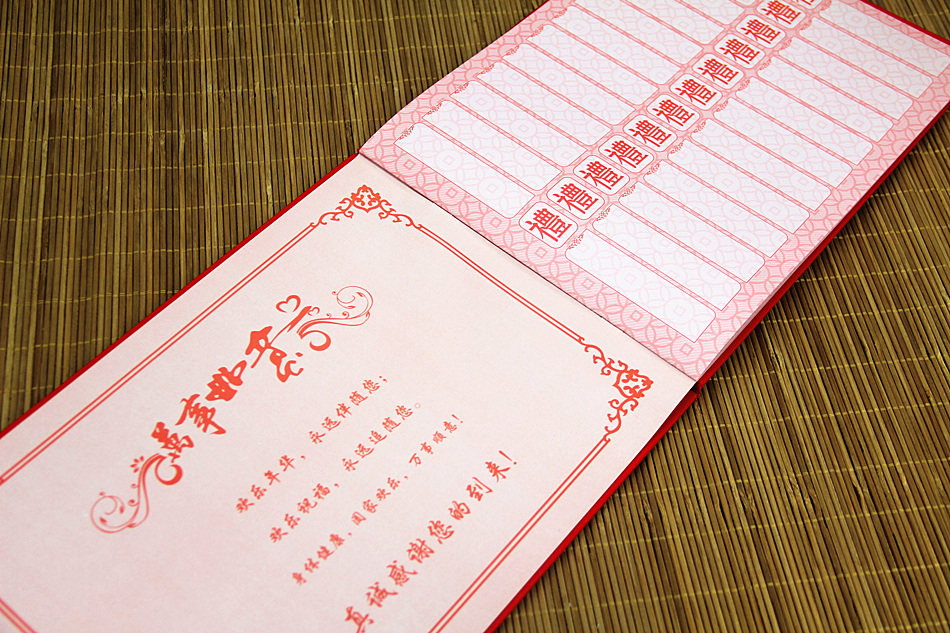 萬事如意
欢乐年华，永远伴随您；
欢乐祝福，永远追随您。
身体健康，阖家欢乐，万事顺意！
真诚感谢您的到来！
禮
禮
禮
禮
禮
禮
禮
禮
禮
禮
禮